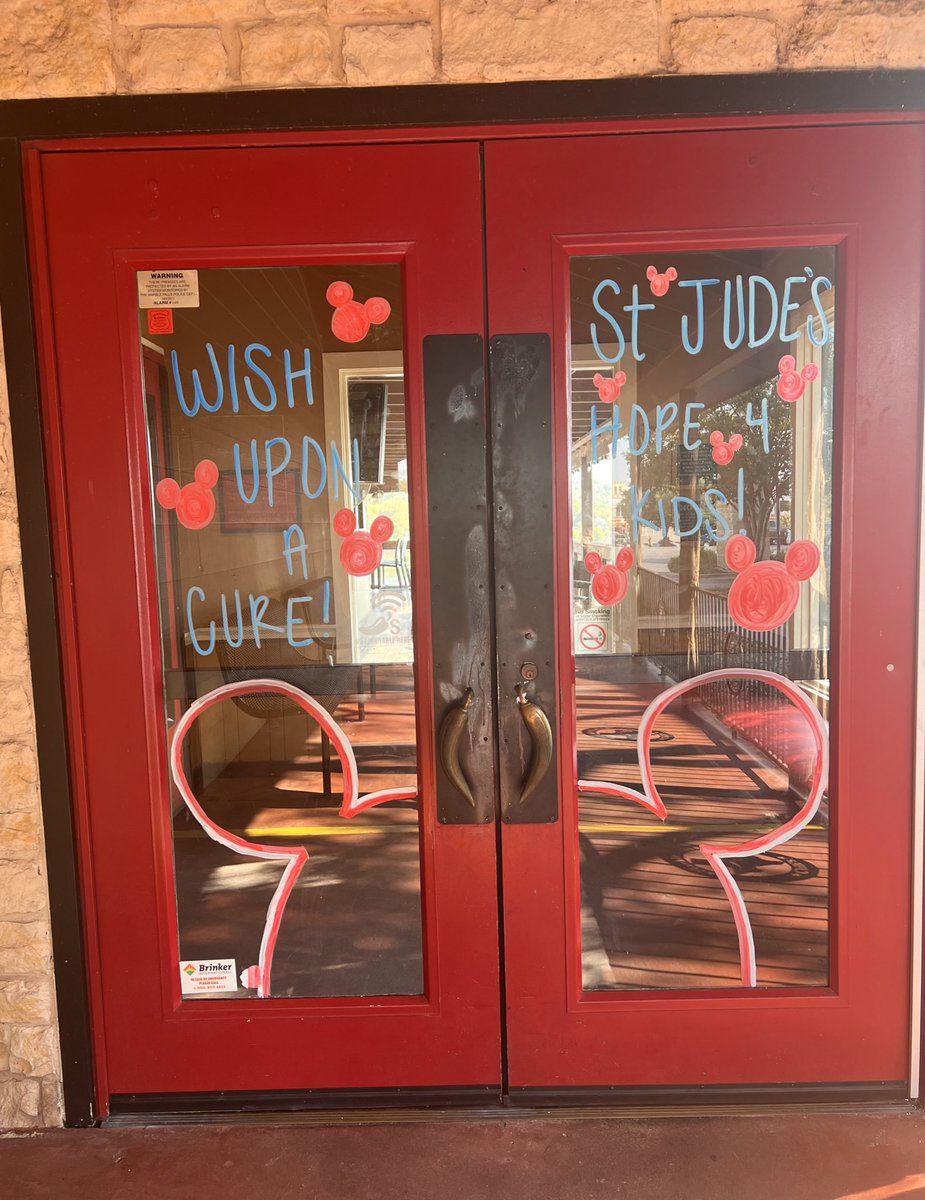 WARNING
THESE PREMISES ARE
PROTECTED BY AN ALARM
SYSTEM MONITORED BY
THE MARBLE FALLS POLICE DEPT.
ALARM #
WISH
UPON
A
CURE!
Brinker
INTERNATIONAL
IN CASE OF EMERGENCY
PLEASE CALL
St JUDE'S
HOPE 4
KIDS!
No Smoking